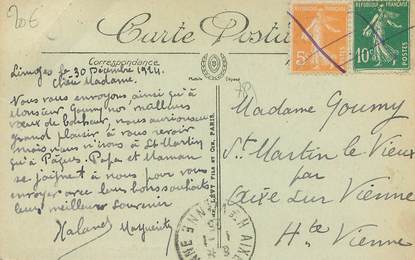 20€
Carte Postale
Correspondance
RÉPUBLIQUE FRANÇAISE
5c
10c
Limoges le 30 Décembre 1924.
Chère Madame.
Nous vous envoyons ainsi qu'à
Monsieur Goumy nos meilleurs
vœux de bonheur, nous aurions un
grand plaisir à vous revoir
mais nous n'irons à St-Martin
qu'à Pâques. Papa et Maman
se joignent à nous pour vous
envoyer avec leurs bons souhaits
leur meilleur souvenir
Marguerite
LEVY FILS ET CIE, PARIS
Madame Goumy
St Martin le Vieux
par
Aixe sur Vienne
Hte Vienne
AIXE
VIENNE